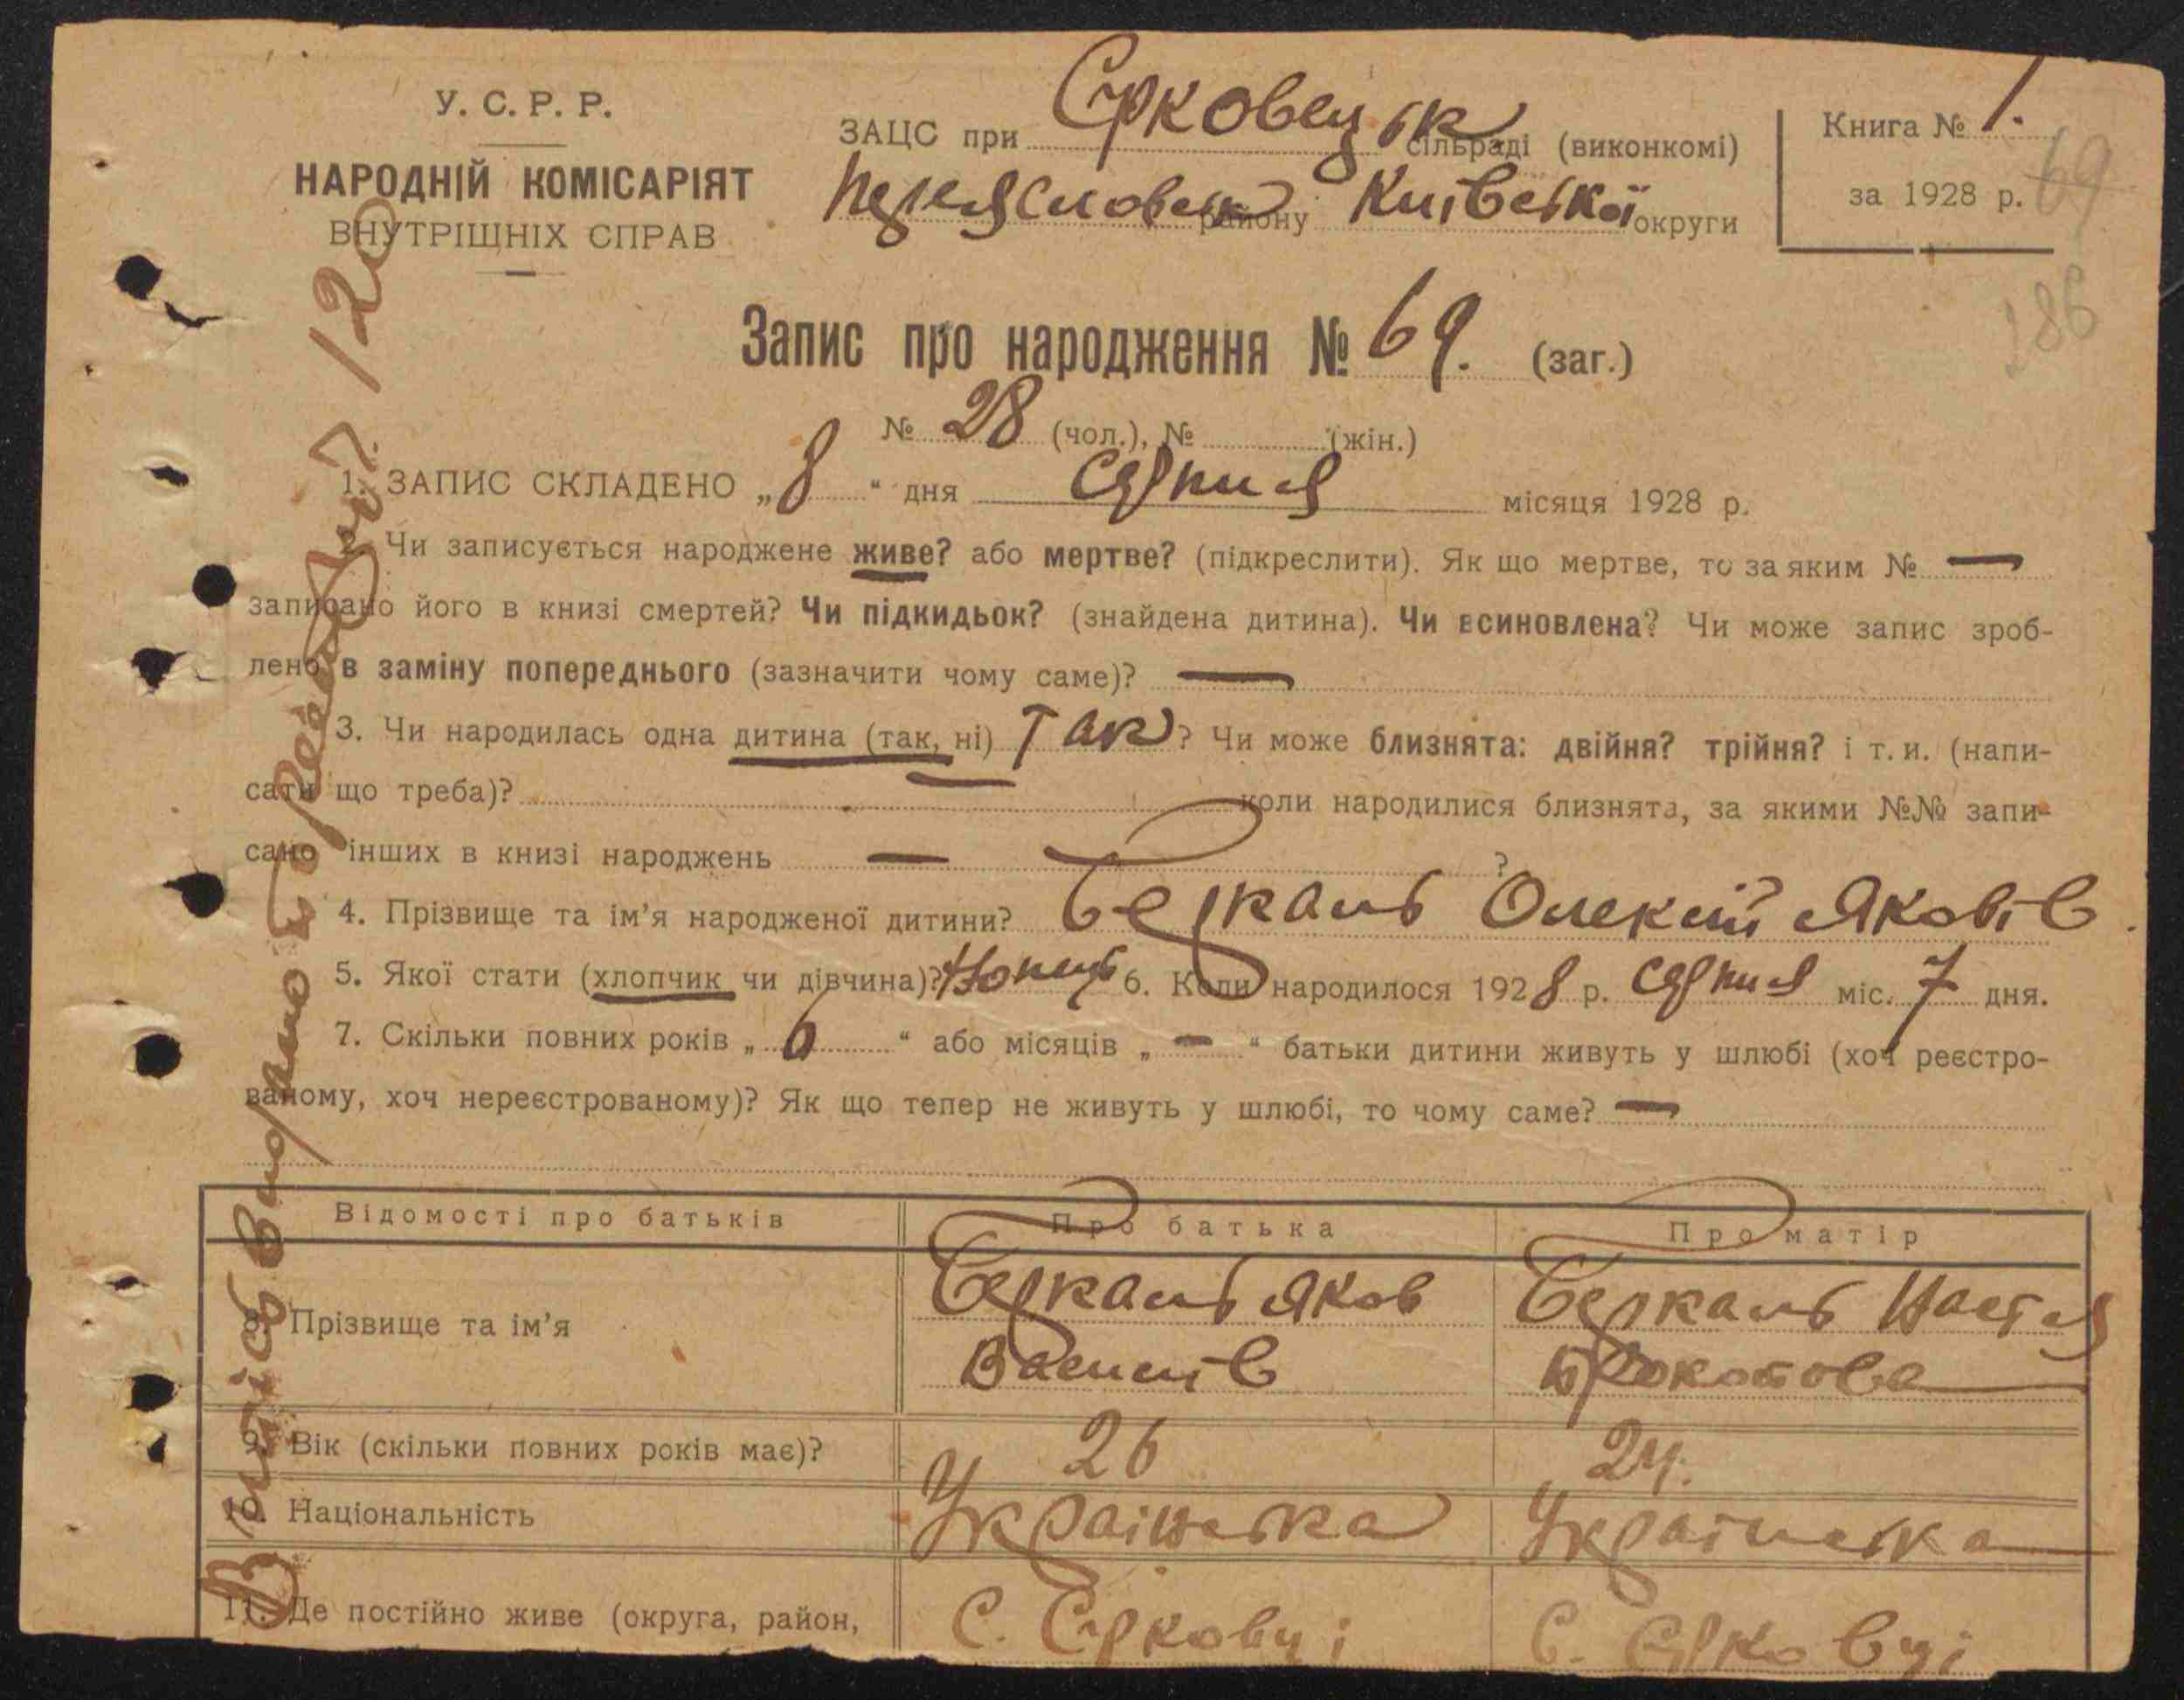 У. С. Р. Р.
НАРОДНІЙ КОМІСАРІЯТ
ВНУТРІШНІХ СПРАВ
ЗАЦС при Єрковецьк сільраді (виконкомі)
Переяславськ району Київської округи
Книга № 1.
за 1928 р. 69
186
Запис про народження № 69. (заг.)
№ 28 (чол.), № (жін.)
1. ЗАПИС СКЛАДЕНО „8“ дня серпня місяця 1928 р.
Чи записується народжене живе? або мертве? (підкреслити). Як що мертве, то за яким № —
записано його в книзі смертей? Чи підкидьок? (знайдена дитина). Чи всиновлена? Чи може запис зроб-
лено в заміну попереднього (зазначити чому саме)? —
3. Чи народилась одна дитина (так, ні) Так? Чи може близнята: двійня? трійня? і т. и. (напи-
сати що треба)? — коли народилися близнята, за якими №№ запи-
сано інших в книзі народжень — ?
4. Прізвище та ім'я народженої дитини? Безкаль Олексій Яковів.
5. Якої стати (хлопчик чи дівчина)? 6. Коли народилося 1928 р. серпня міс. 7 дня.
7. Скільки повних років „6“ або місяців „—“ батьки дитини живуть у шлюбі (хоч реєстро-
ваному, хоч нереєстрованому)? Як що тепер не живуть у шлюбі, то чому саме? —
Відомості про батьків Про батька Про матір
8. Прізвище та ім'я Безкаль Яков Василів Безкаль Настя
9. Вік (скільки повних років має)? 26 24.
10. Національність Українська Українська
11. Де постійно живе (округа, район, С. Єрковці С. Єрковці
Витяг видано 120